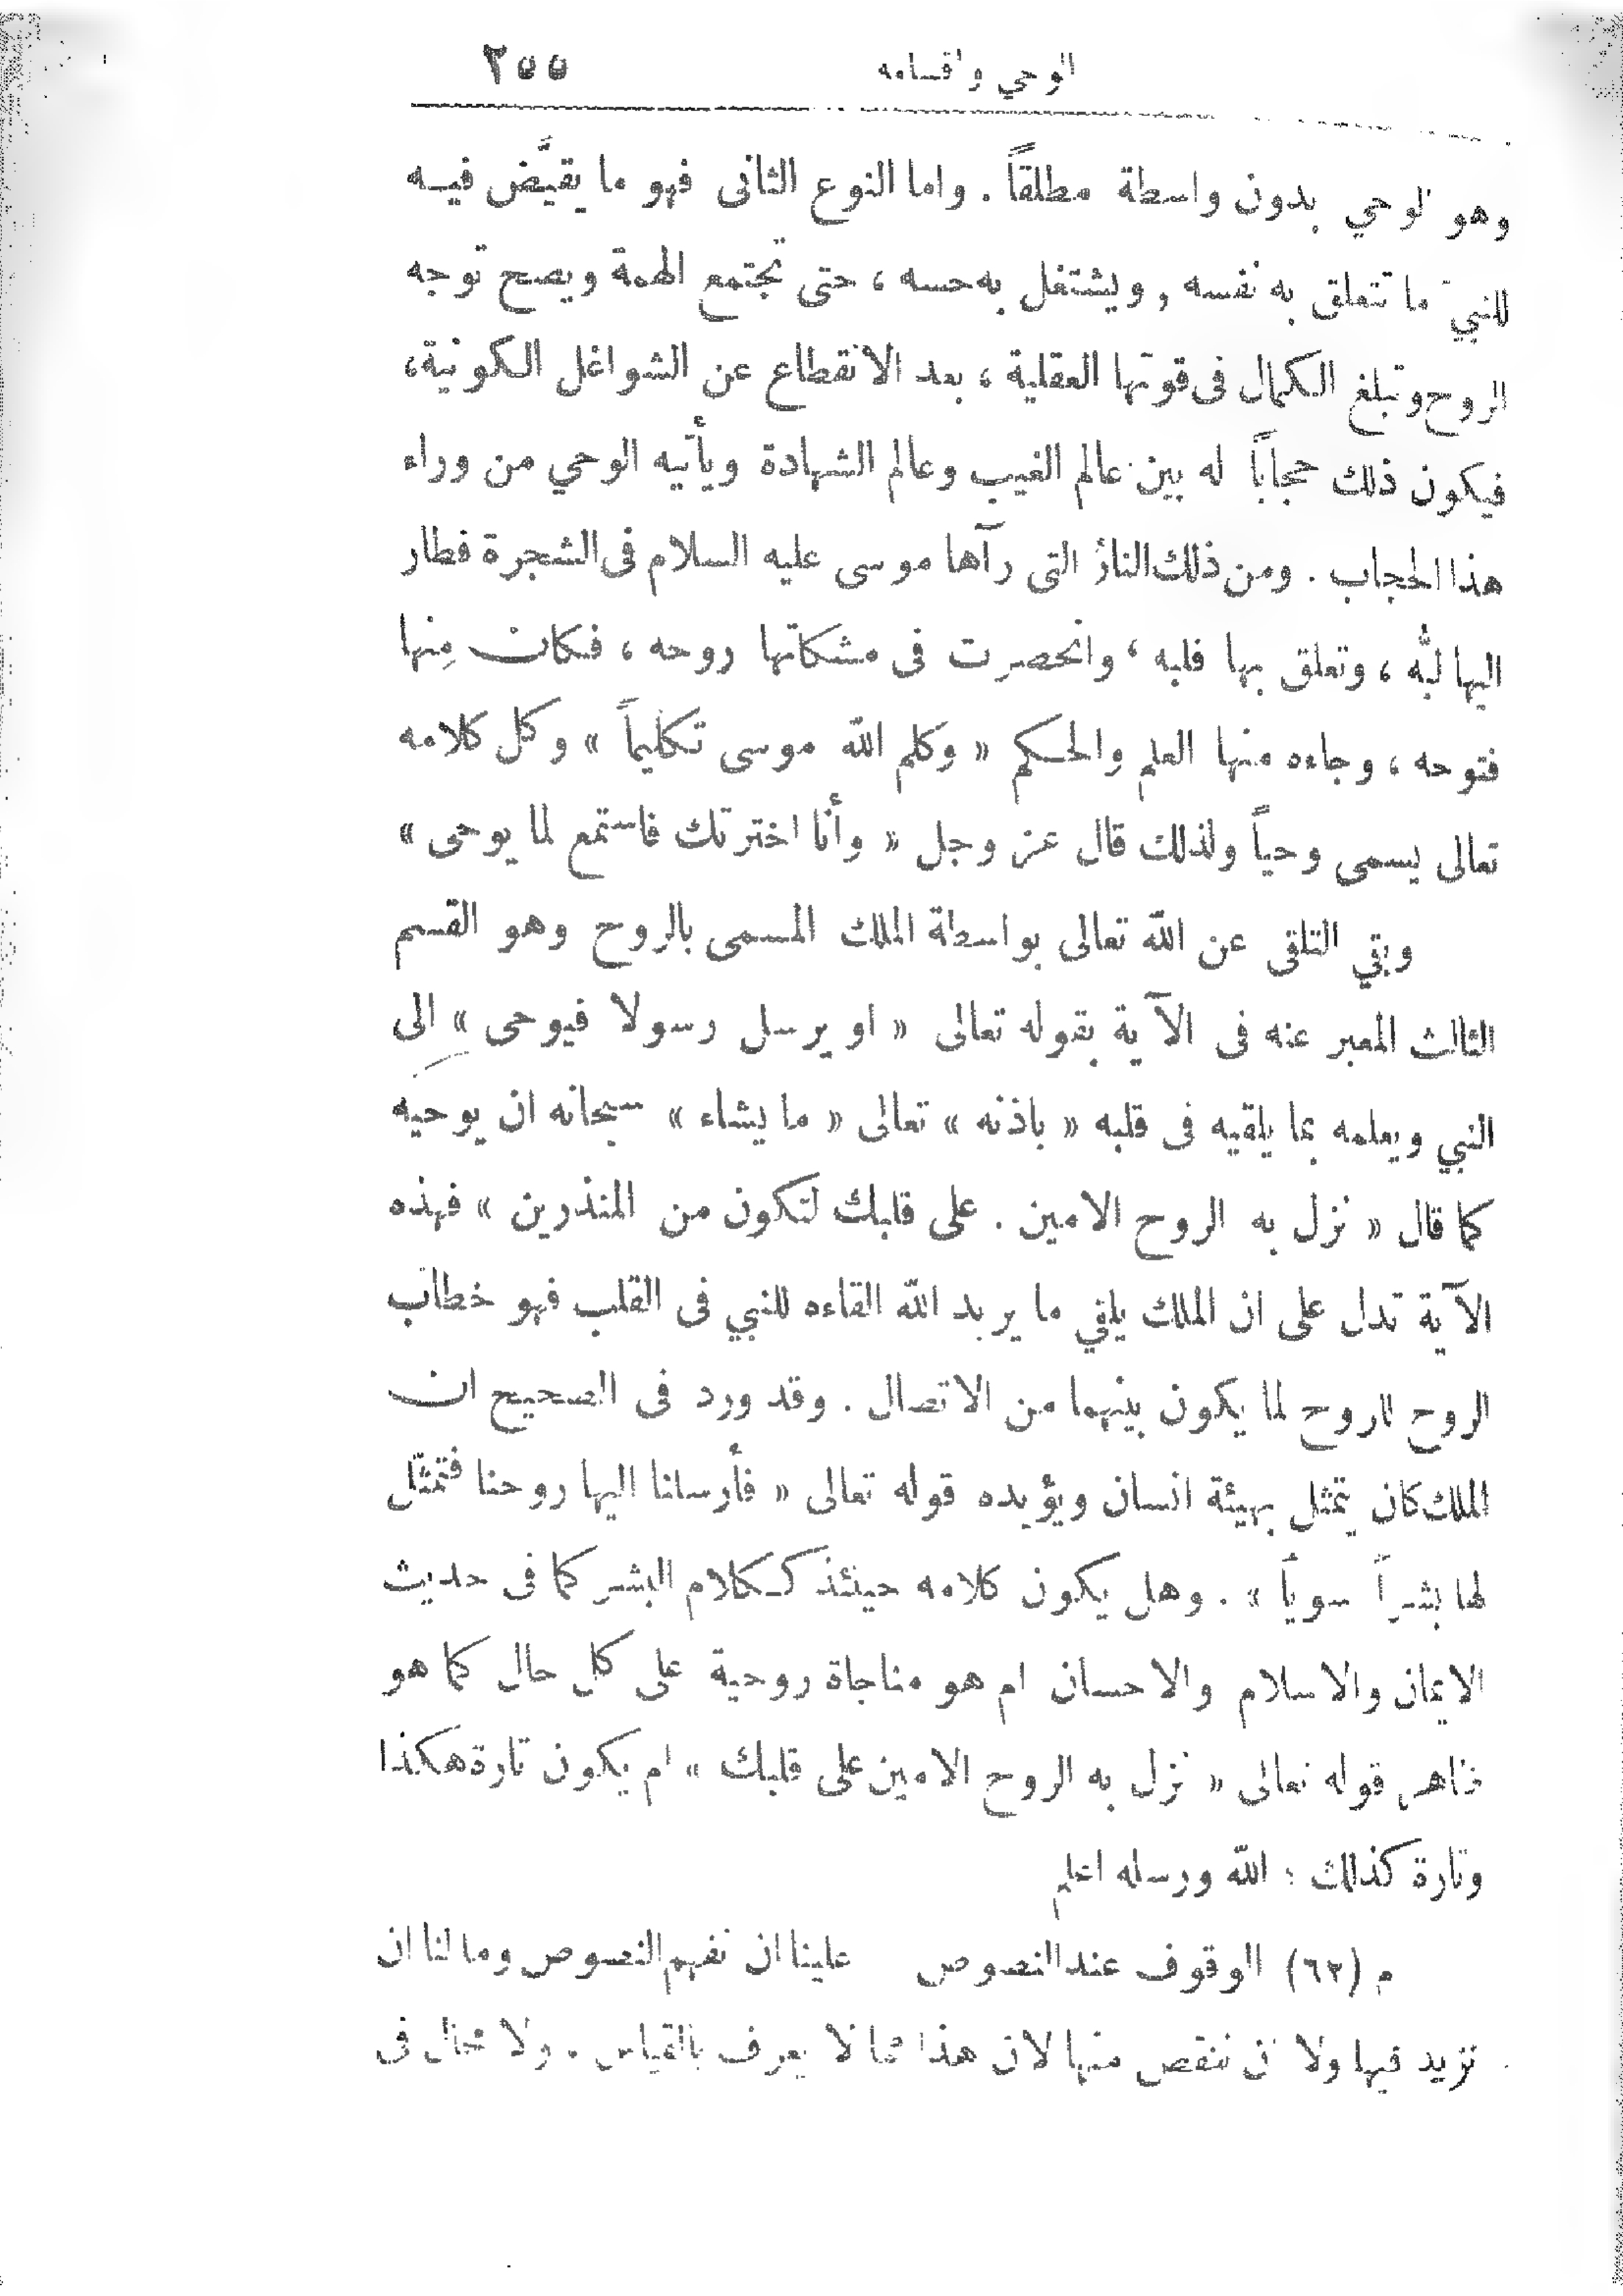 الوحي واقسامه ٢٥٥
وهو الوحي بدون واسطة مطلقاً . واما النوع الثانى فهو ما يقيَّض فيه
للنبي ما تتعلق به نفسه , ويشتغل به حسه ، حتى تجتمع الهمة ويصح توجه
الروح وتبلغ الكمال فى قوتها العقلية ، بعد الانقطاع عن الشواغل الكونية،
فيكون ذلك حجاباً له بين عالم الغيب وعالم الشهادة ويأتيه الوحي من وراء
هذا الحجاب . ومن ذلك النارُ التى رآها موسى عليه السلام فى الشجرة فطار
اليها لبُّه ، وتعلق بها قلبه ، وانحصرت فى مشكاتها روحه ، فكان مِنها
فتوحه ، وجاءه منها العلم والحكم « وكلم اللّه موسى تكليماً » وكل كلامه
تعالى يسمى وحياً ولذلك قال عز وجل « وأنا اخترتك فاستمع لما يوحى »
وبقي التلقى عن اللّه تعالى بواسطة الملك المسمى بالروح وهو القسم
الثالث المعبر عنه فى الآية بقوله تعالى « او يرسل رسولا فيوحى » الى
النبي ويعلمه بما يلقيه فى قلبه « باذنه » تعالى « ما يشاء » سبحانه ان يوحيه
كما قال « نزل به الروح الامين . على قلبك لتكون من المنذرين » فهذه
الآية تدل على ان الملك يلقي ما يريد اللّه القاءه للنبي فى القلب فهو خطاب
الروح للروح لما يكون بينهما من الاتصال . وقد ورد فى الصحيح ان
الملك كان يتمثل بهيئة انسان ويؤيده قوله تعالى « فأرسلنا اليها روحنا فتمثّل
لها بشراً سوياً » . وهل يكون كلامه حينئذ ككلام البشر كما فى حديث
الايمان والاسلام والاحسان ام هو مناجاة روحية على كل حال كما هو
ظاهر قوله تعالى « نزل به الروح الامين على قلبك » ام يكون تارة هكذا
وتارة كذلك ؛ اللّه ورسله اعلم
م (٦٣) الوقوف عند النصوص علينا ان نفهم النصوص وما لنا ان
نزيد فيها ولا ان ننقص منها لان هذا مما لا يعرف بالقياس . ولا مجال فى